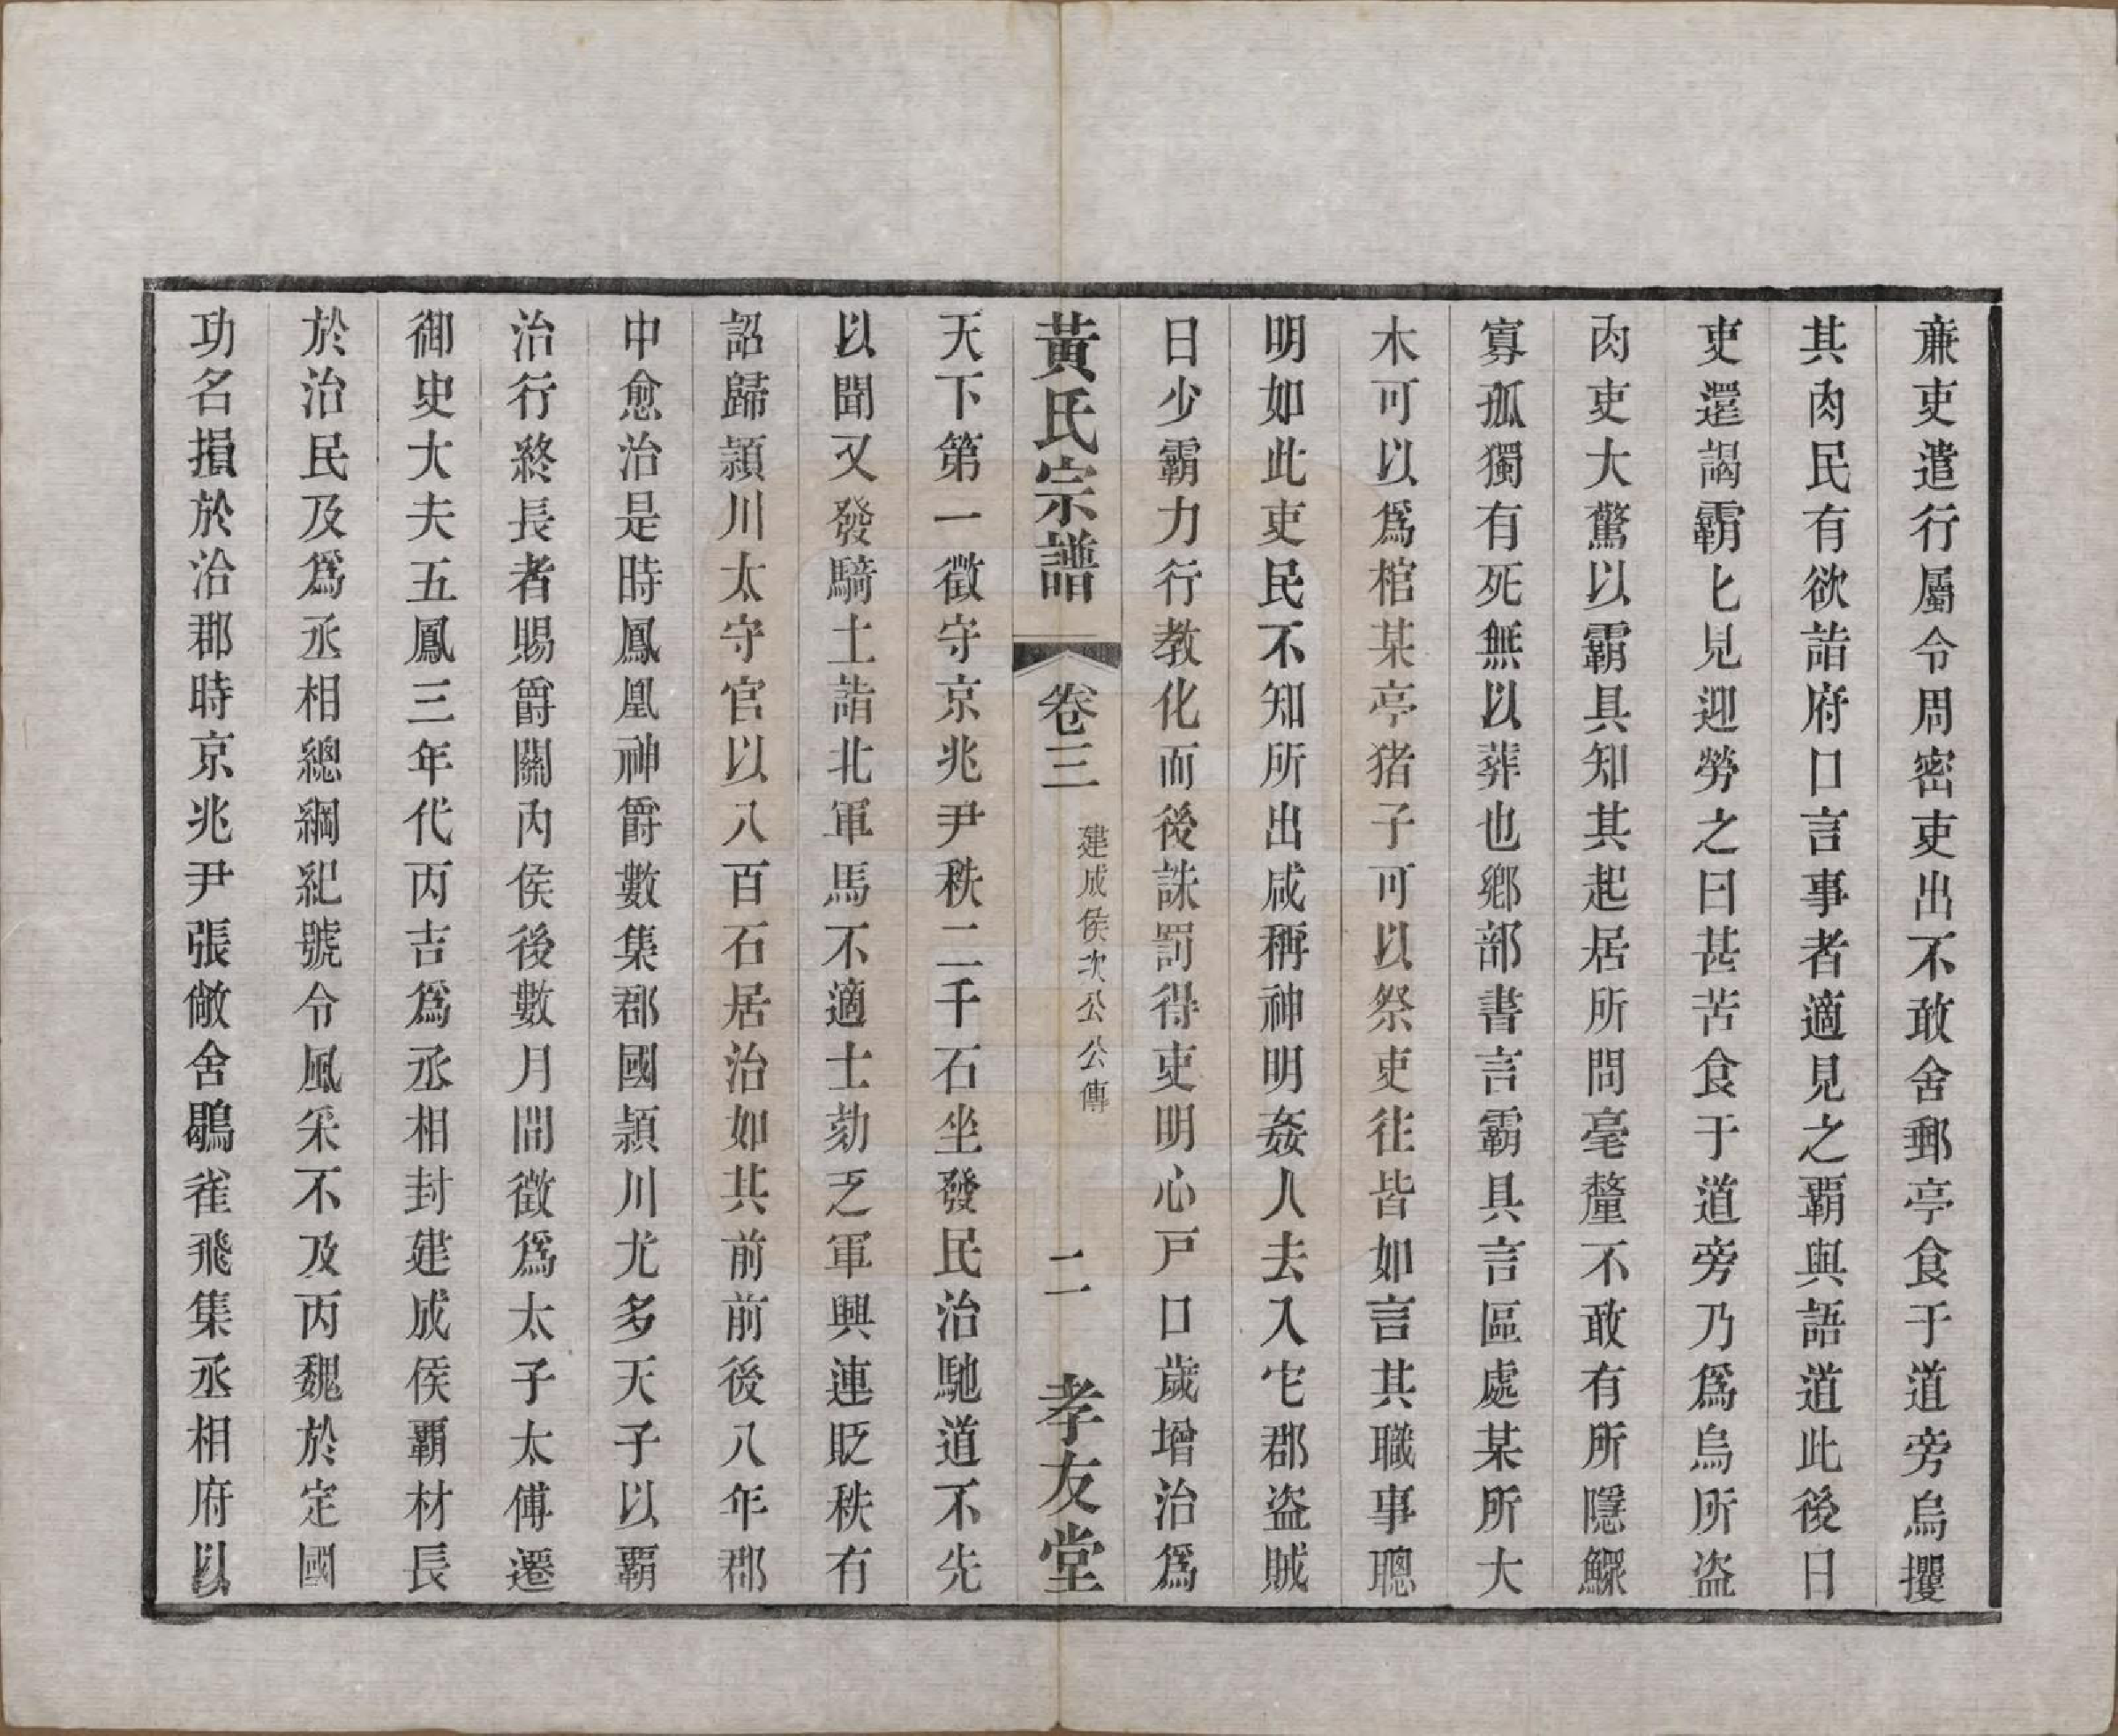 亷吏遣行屬令周密吏出不敢舍郵亭食于道旁烏攫
其肉民有欲詣府口言事者適見之覇與語道此後日
吏還謁霸匕見迎勞之曰甚苦食于道旁乃爲烏所盗
肉吏大驚以霸具知其起居所問毫釐不敢有所隱鰥
寡孤獨有死無以葬也鄉部書言霸具言區處某所大
木可以爲棺某亭猪子可以祭吏往皆如言其職事聰
明如此吏民不知所出咸稱神明姦人去入它郡盗賊
日少霸力行教化而後誅罰得吏明心戸口歲增治爲
黃氏宗譜 卷三 建成侯次公公傳 二 孝友堂
天下第一徵守京兆尹秩二千石坐發民治馳道不先
以聞又發騎士詣北軍馬不適士劾乏軍興連貶秩有
詔歸潁川太守官以八百石居治如其前前後八年郡
中愈治是時鳳凰神爵數集郡國潁川尤多天子以覇
治行終長者賜爵關内侯後數月間徵爲太子太傅遷
御史大夫五鳳三年代丙吉爲丞相封建成侯覇材長
於治民及爲丞相總綱紀號令風采不及丙魏於定國
功名損於治郡時京兆尹張敞舍鶡雀飛集丞相府以